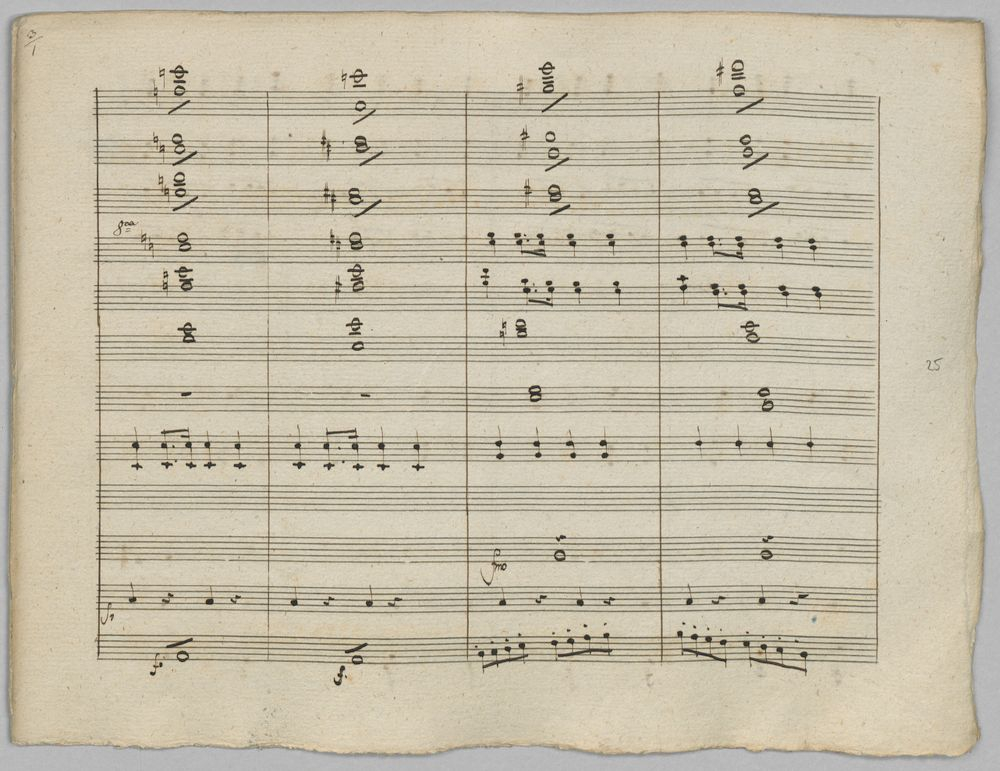 3/1
8va
25
fmo
f.
f.